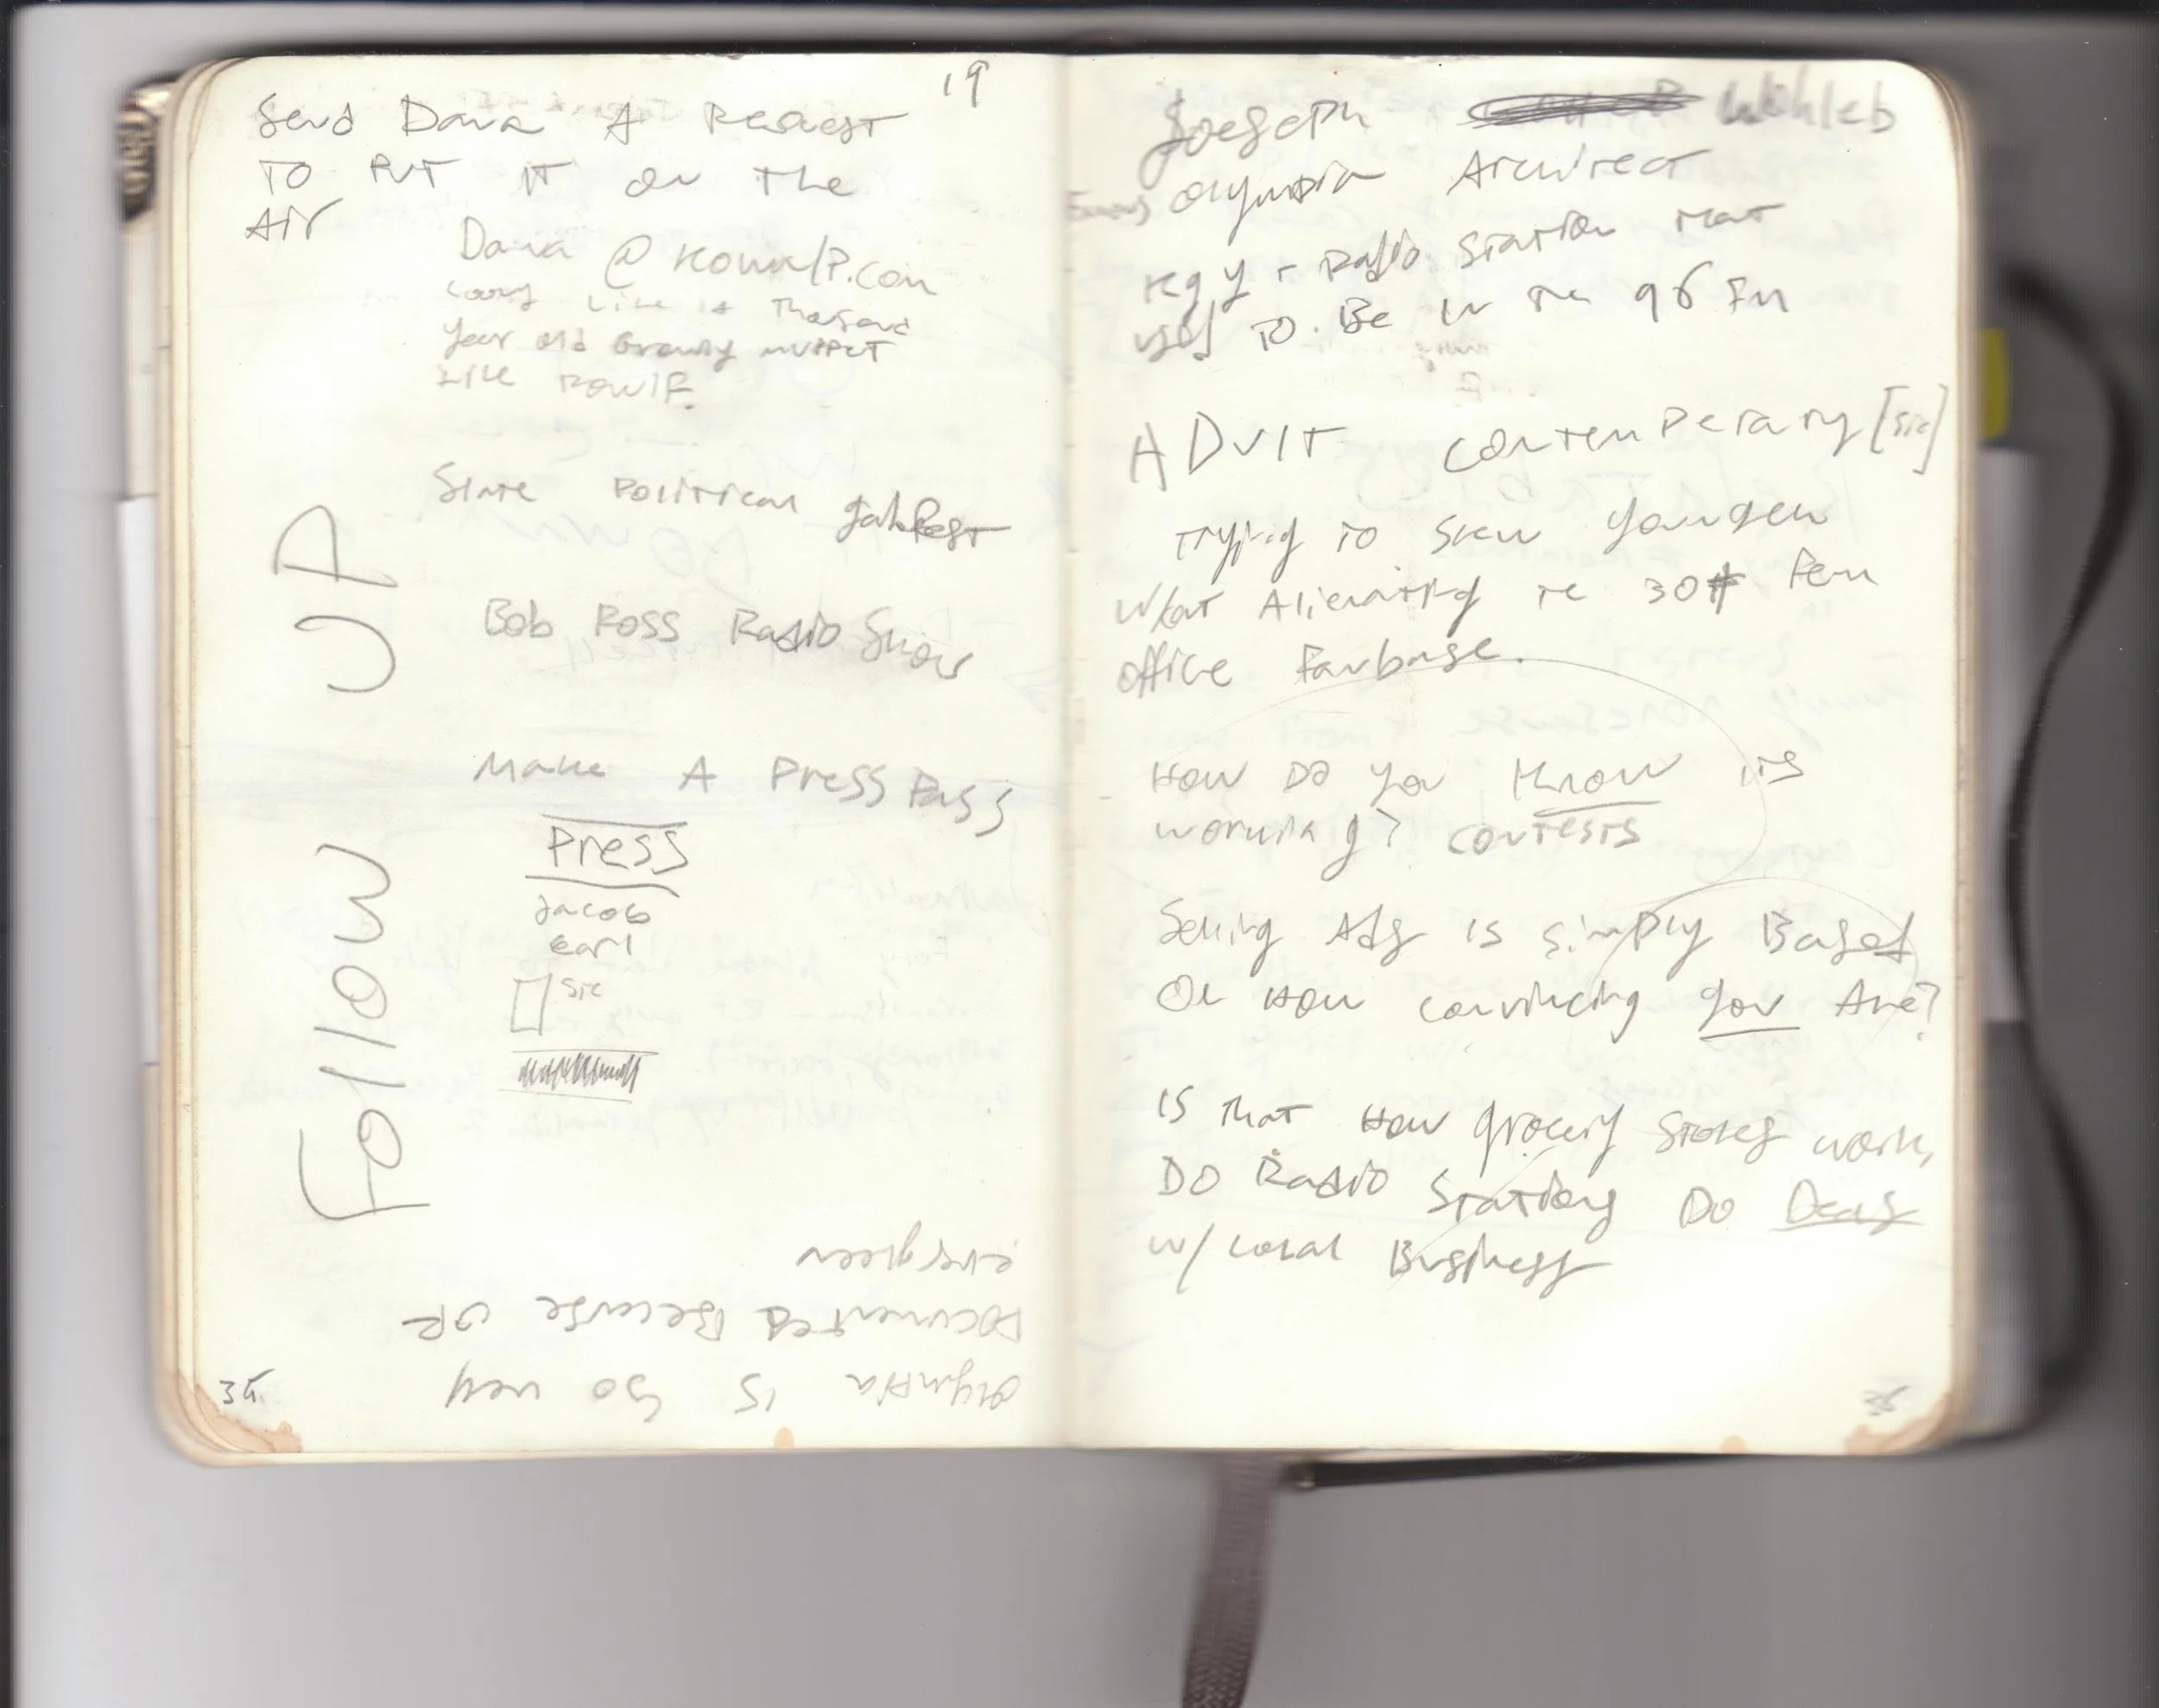 19
Send Dana A Request
TO PUT IT on The
Air
Dana @
Like A Thousand
Year old Grandy muppet
Like Rowlf.
State Political
Bob Ross Radio Show
Make A Press Pass
Press
Jacob
earl
sic
Follow UP
Olympia is so very
Documented Because of
evergreen
34.
Joeseph Wohleb
Famous Olympia Architect
KGY - Radio Station that
used TO Be in the 96 FM
ADULT Contemperary [sic]
Trying to skew younger
w/out Alienating the 30+ Fem
office Fanbase.
How Do you know its
working? contests
Selling Ads is simply Based
On How convincing you Are?
Is That How grocery stores work,
DO Radio Stations Do Deals
w/ Local Business
35